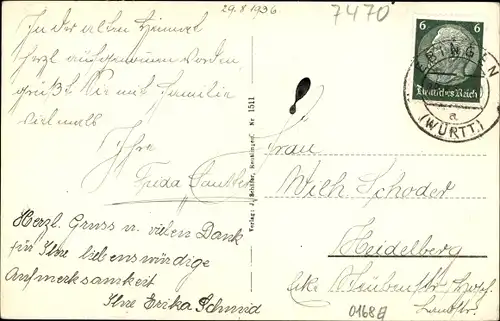 29.8.1936
7470
In der alten Heimat
herzl. aufgenommen worden
grüßt Sie mit Familie
vielmals
Ihre
Frida
Herzl. Gruss u. vielen Dank
für Ihre liebenswürdige
Aufmerksamkeit
Ihre Erika Schmid
Verlag: J. Schäfer, Renningen. Nr 1511
6 6
Deutsches Reich
INGEN
a
(WÜRTT.)
Frau
Wilh Schoder
Heidelberg
0168E